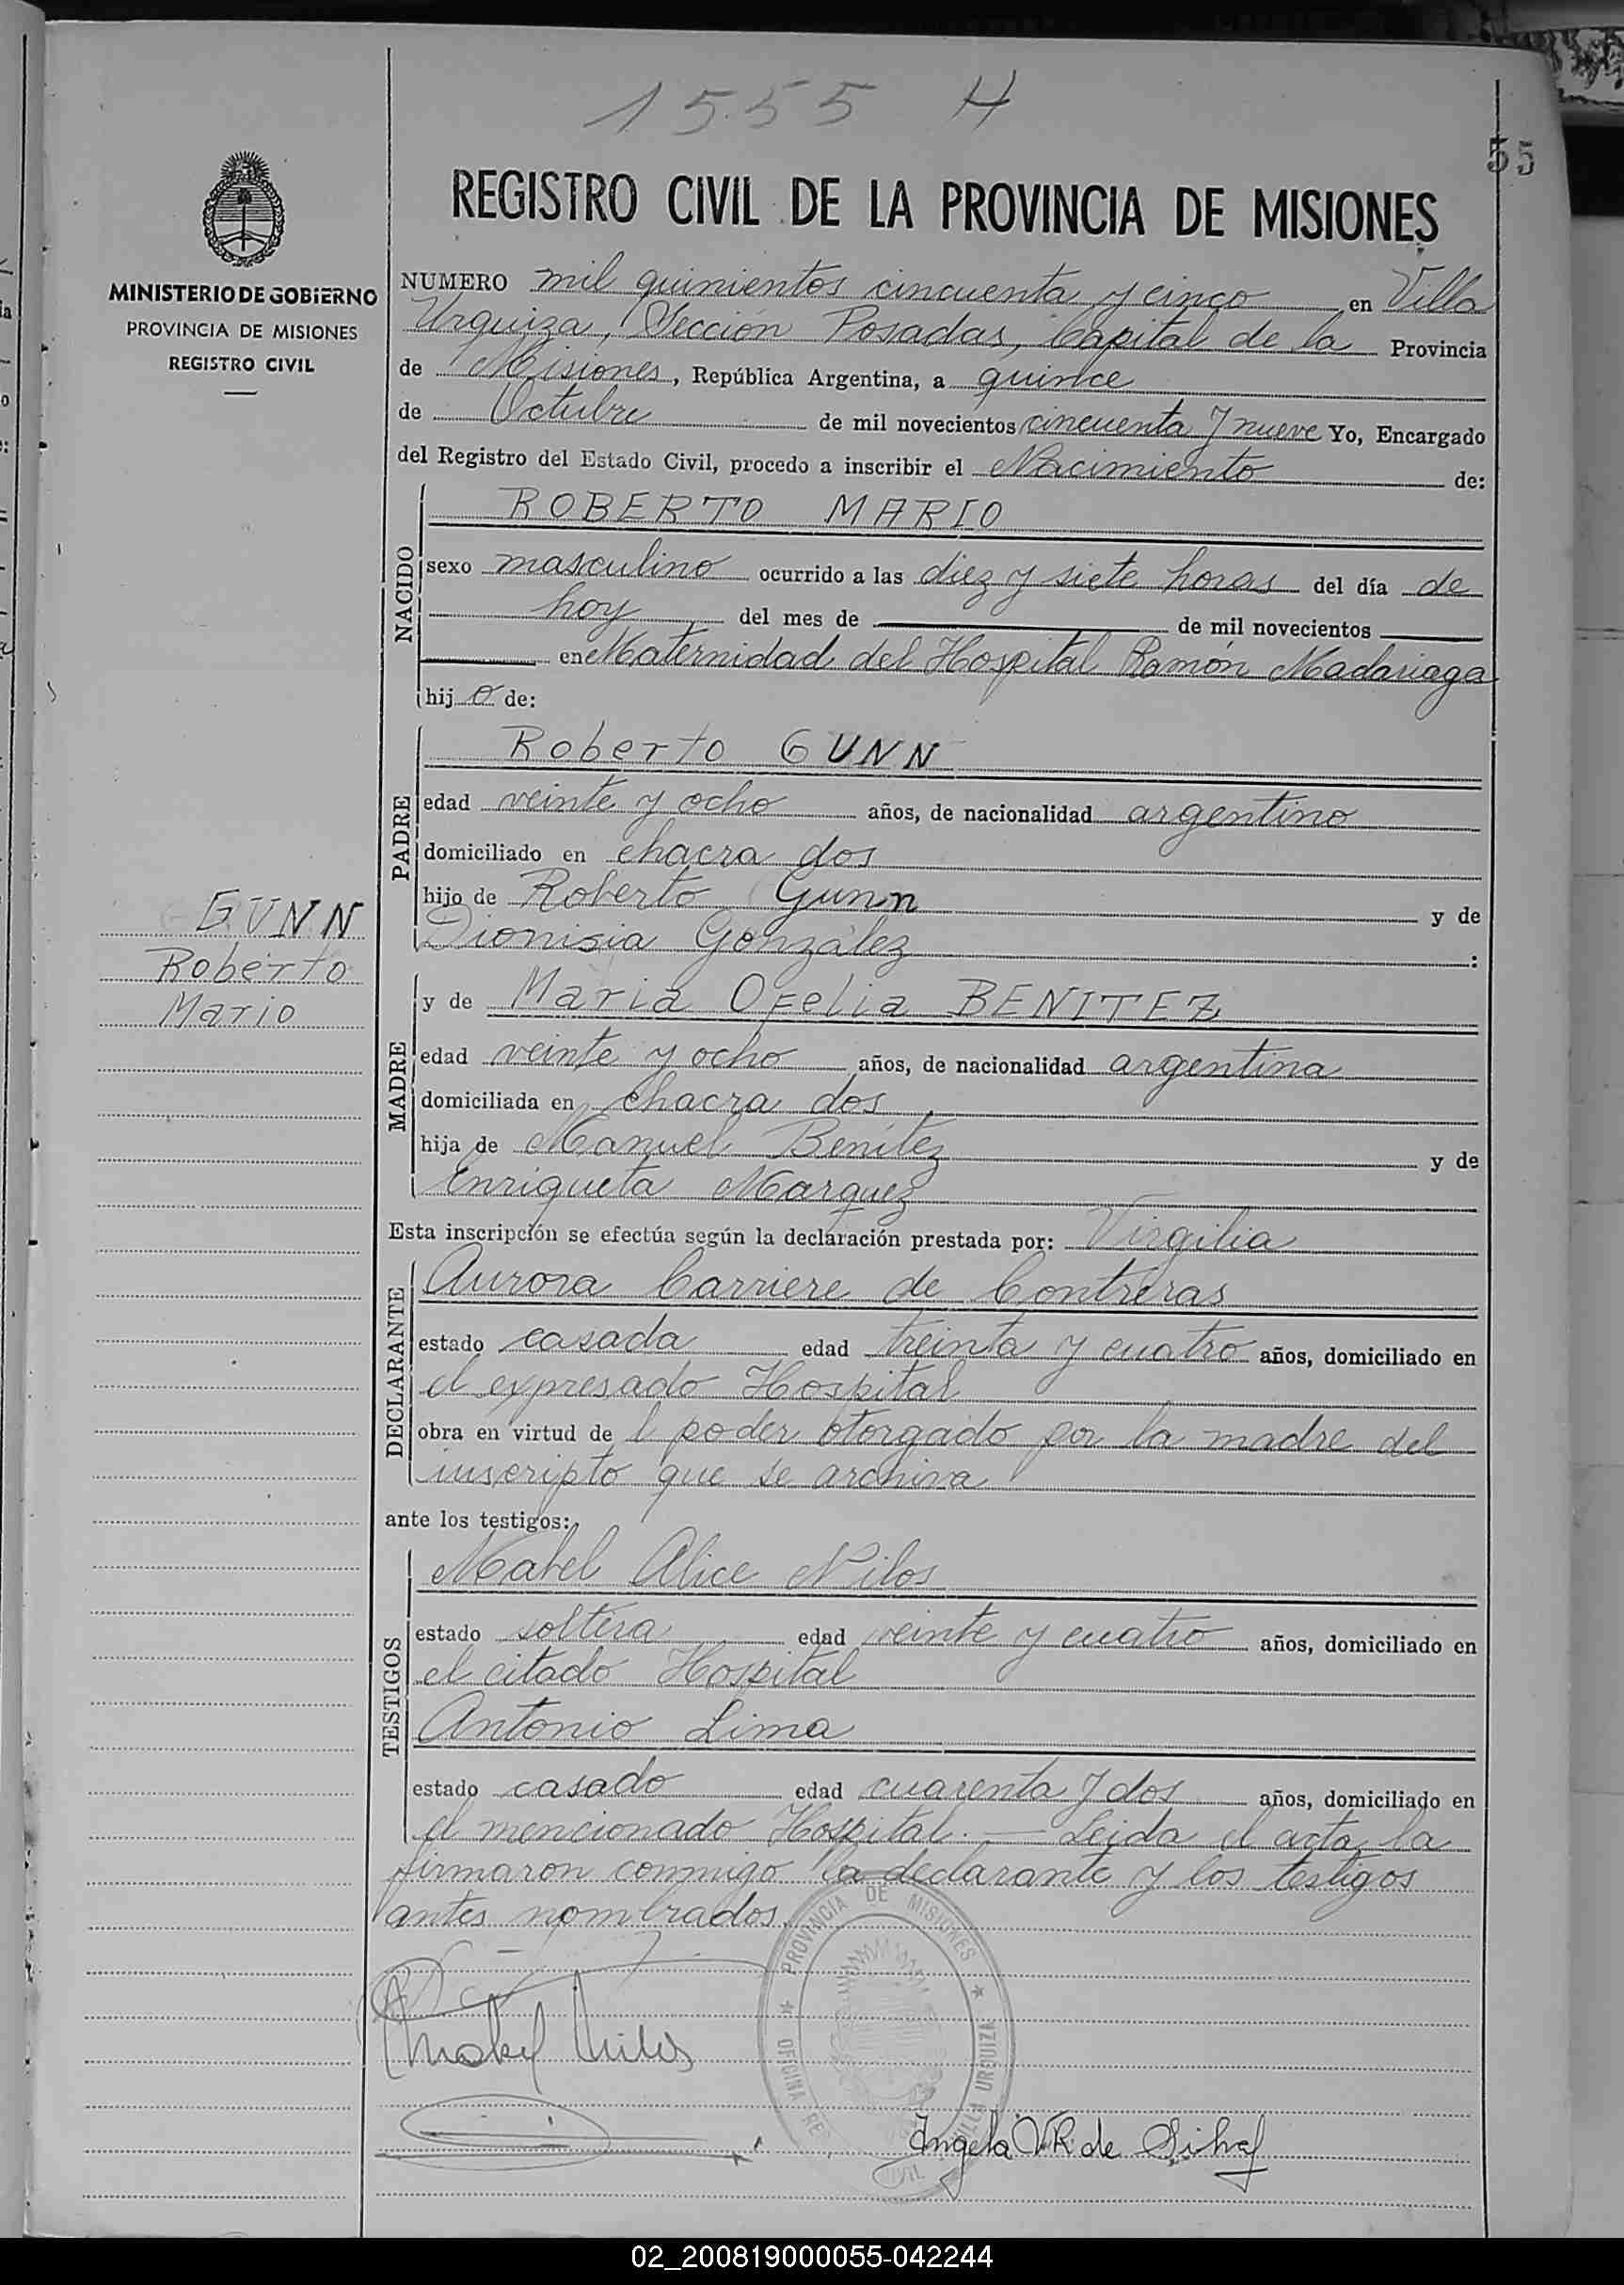 1555 H
55
MINISTERIO DE GOBIERNO
PROVINCIA DE MISIONES
REGISTRO CIVIL
REGISTRO CIVIL DE LA PROVINCIA DE MISIONES
NUMERO mil quinientos cincuenta y cinco en Villa
Urquiza, Sección Posadas, Capital de la Provincia
de Misiones, República Argentina, a quince
de Octubre de mil novecientos cincuenta y nueve Yo, Encargado
del Registro del Estado Civil, procedo a inscribir el Nacimiento de:
NACIDO
ROBERTO MARIO
sexo masculino ocurrido a las diez y siete horas del día de
hoy del mes de de mil novecientos
en Maternidad del Hospital Ramón Madariaga
hijo de:
PADRE
Roberto GUNN
edad veinte y ocho años, de nacionalidad argentino
domiciliado en chacra dos
hijo de Roberto Gunn y de
Dionisia González :
GUNN
Roberto
Mario
MADRE
y de Maria Ofelia BENITEZ
edad veinte y ocho años, de nacionalidad argentina
domiciliada en chacra dos
hija de Manuel Benítez y de
Enriqueta Marquez
Esta inscripción se efectúa según la declaración prestada por: Virgilia
DECLARANTE
Aurora Carriere de Contreras
estado casada edad treinta y cuatro años, domiciliado en
el expresado Hospital
obra en virtud de l poder otorgado por la madre del
inscripto que se archiva
ante los testigos:
TESTIGOS
Mabel Alice Nilos
estado soltera edad veinte y cuatro años, domiciliado en
el citado Hospital
Antonio Lima
estado casado edad cuarenta y dos años, domiciliado en
el mencionado Hospital. — Leida el acta, la
firmaron conmigo la declarante y los testigos
antes nombrados.
PROVINCIA DE MISIONES
OFICINA RE CIVIL VILLA URQUIZA
Mabel Nilos
Angela V.R. de Silva
02_200819000055-042244